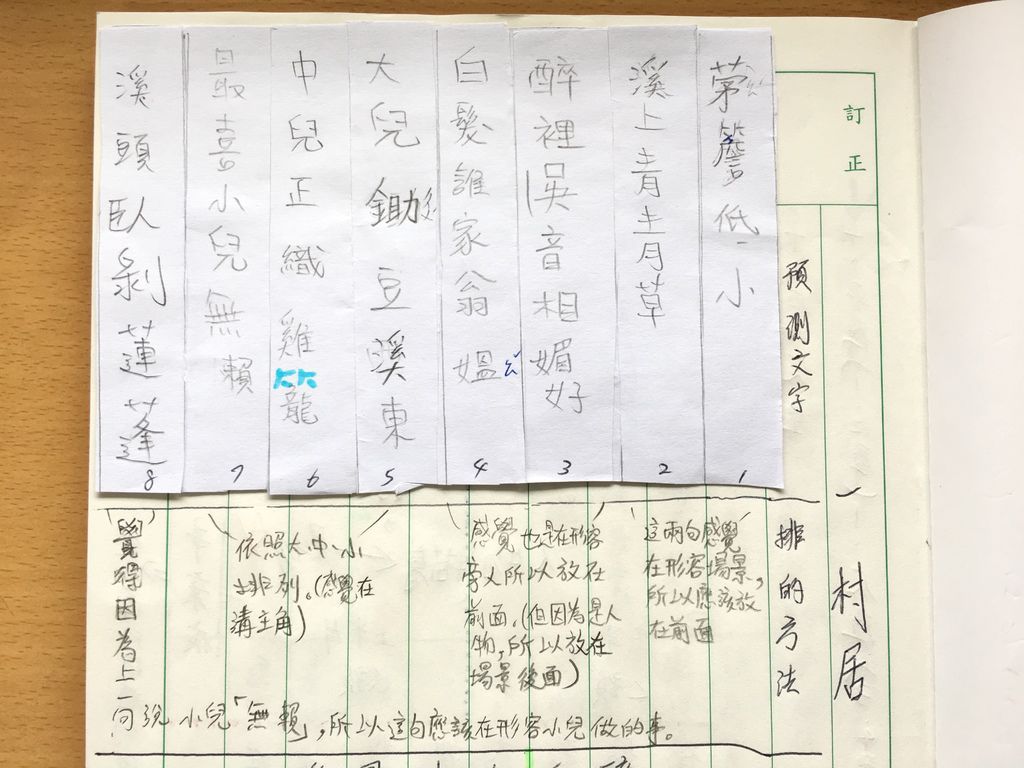 訂正
一 村居
預測文字
茅簷低小
1
溪上青青草
2
醉裡吳音相媚好
3
白髮誰家翁媼
4
大兒鋤豆溪東
5
中兒正織雞籠
6
最喜小兒無賴
7
溪頭臥剝蓮蓬
8
排的方法
這兩句感覺
在形容場景,
所以應該放
在前面
感覺也是在形容
旁人所以放在
前面,(但因為是人
物,所以放在
場景後面)
依照大中小
排列。(感覺在
講主角)
覺得因為上一
句說小兒「無賴」,所以這句應該在形容小兒做的事。